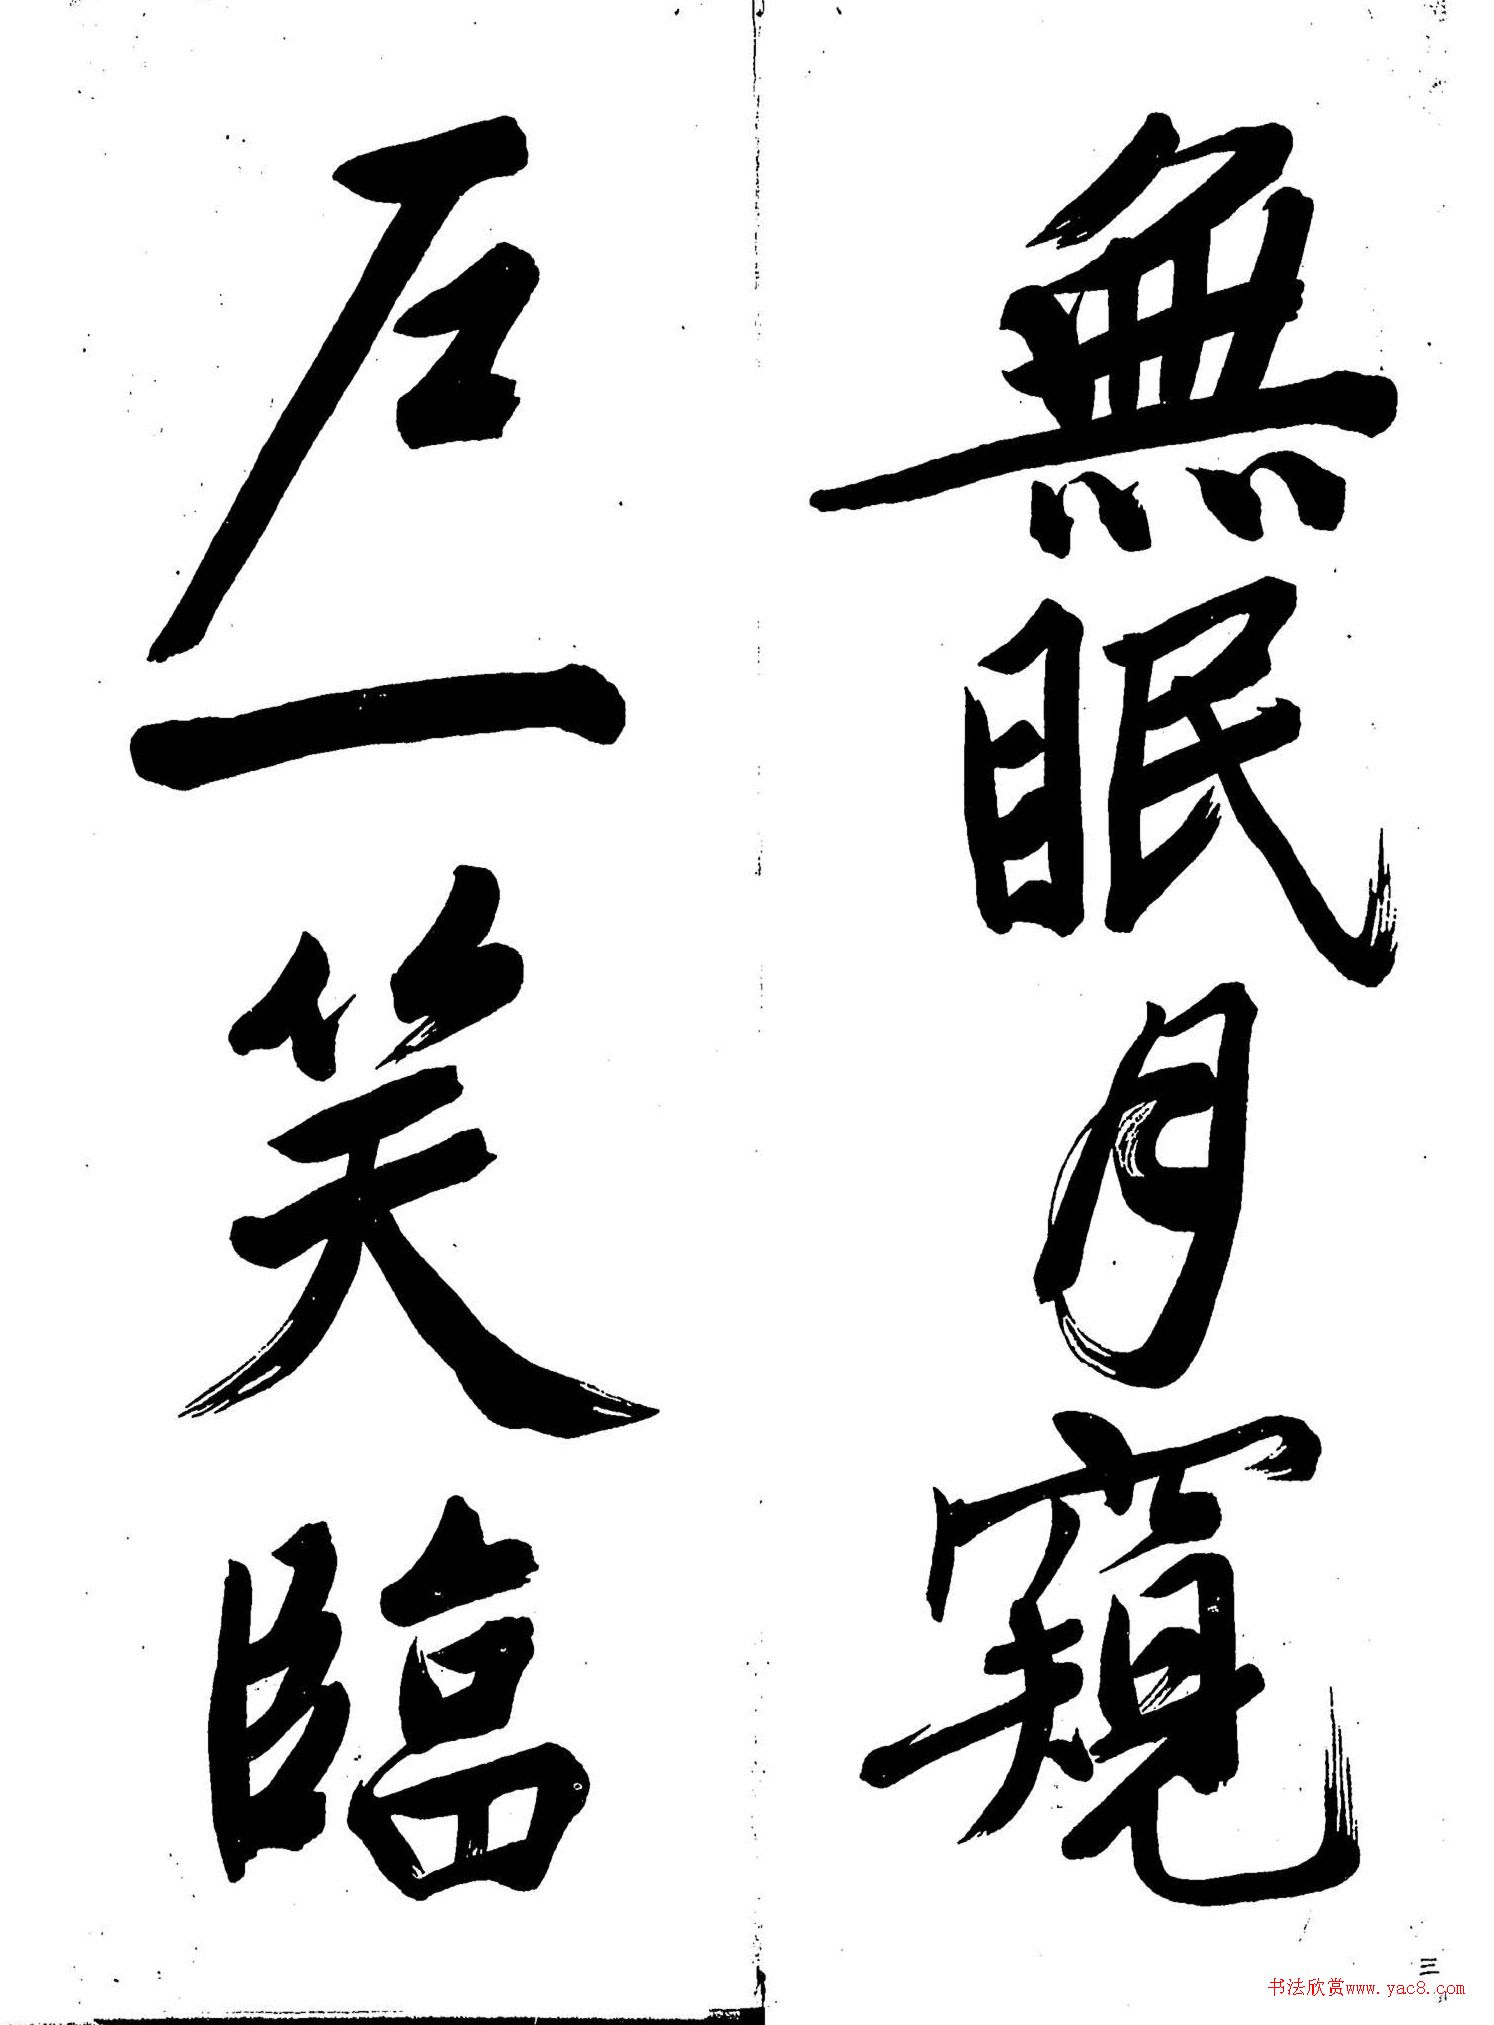 無眠月窺
戶一笑臨
三
书法欣赏www.yac8.com